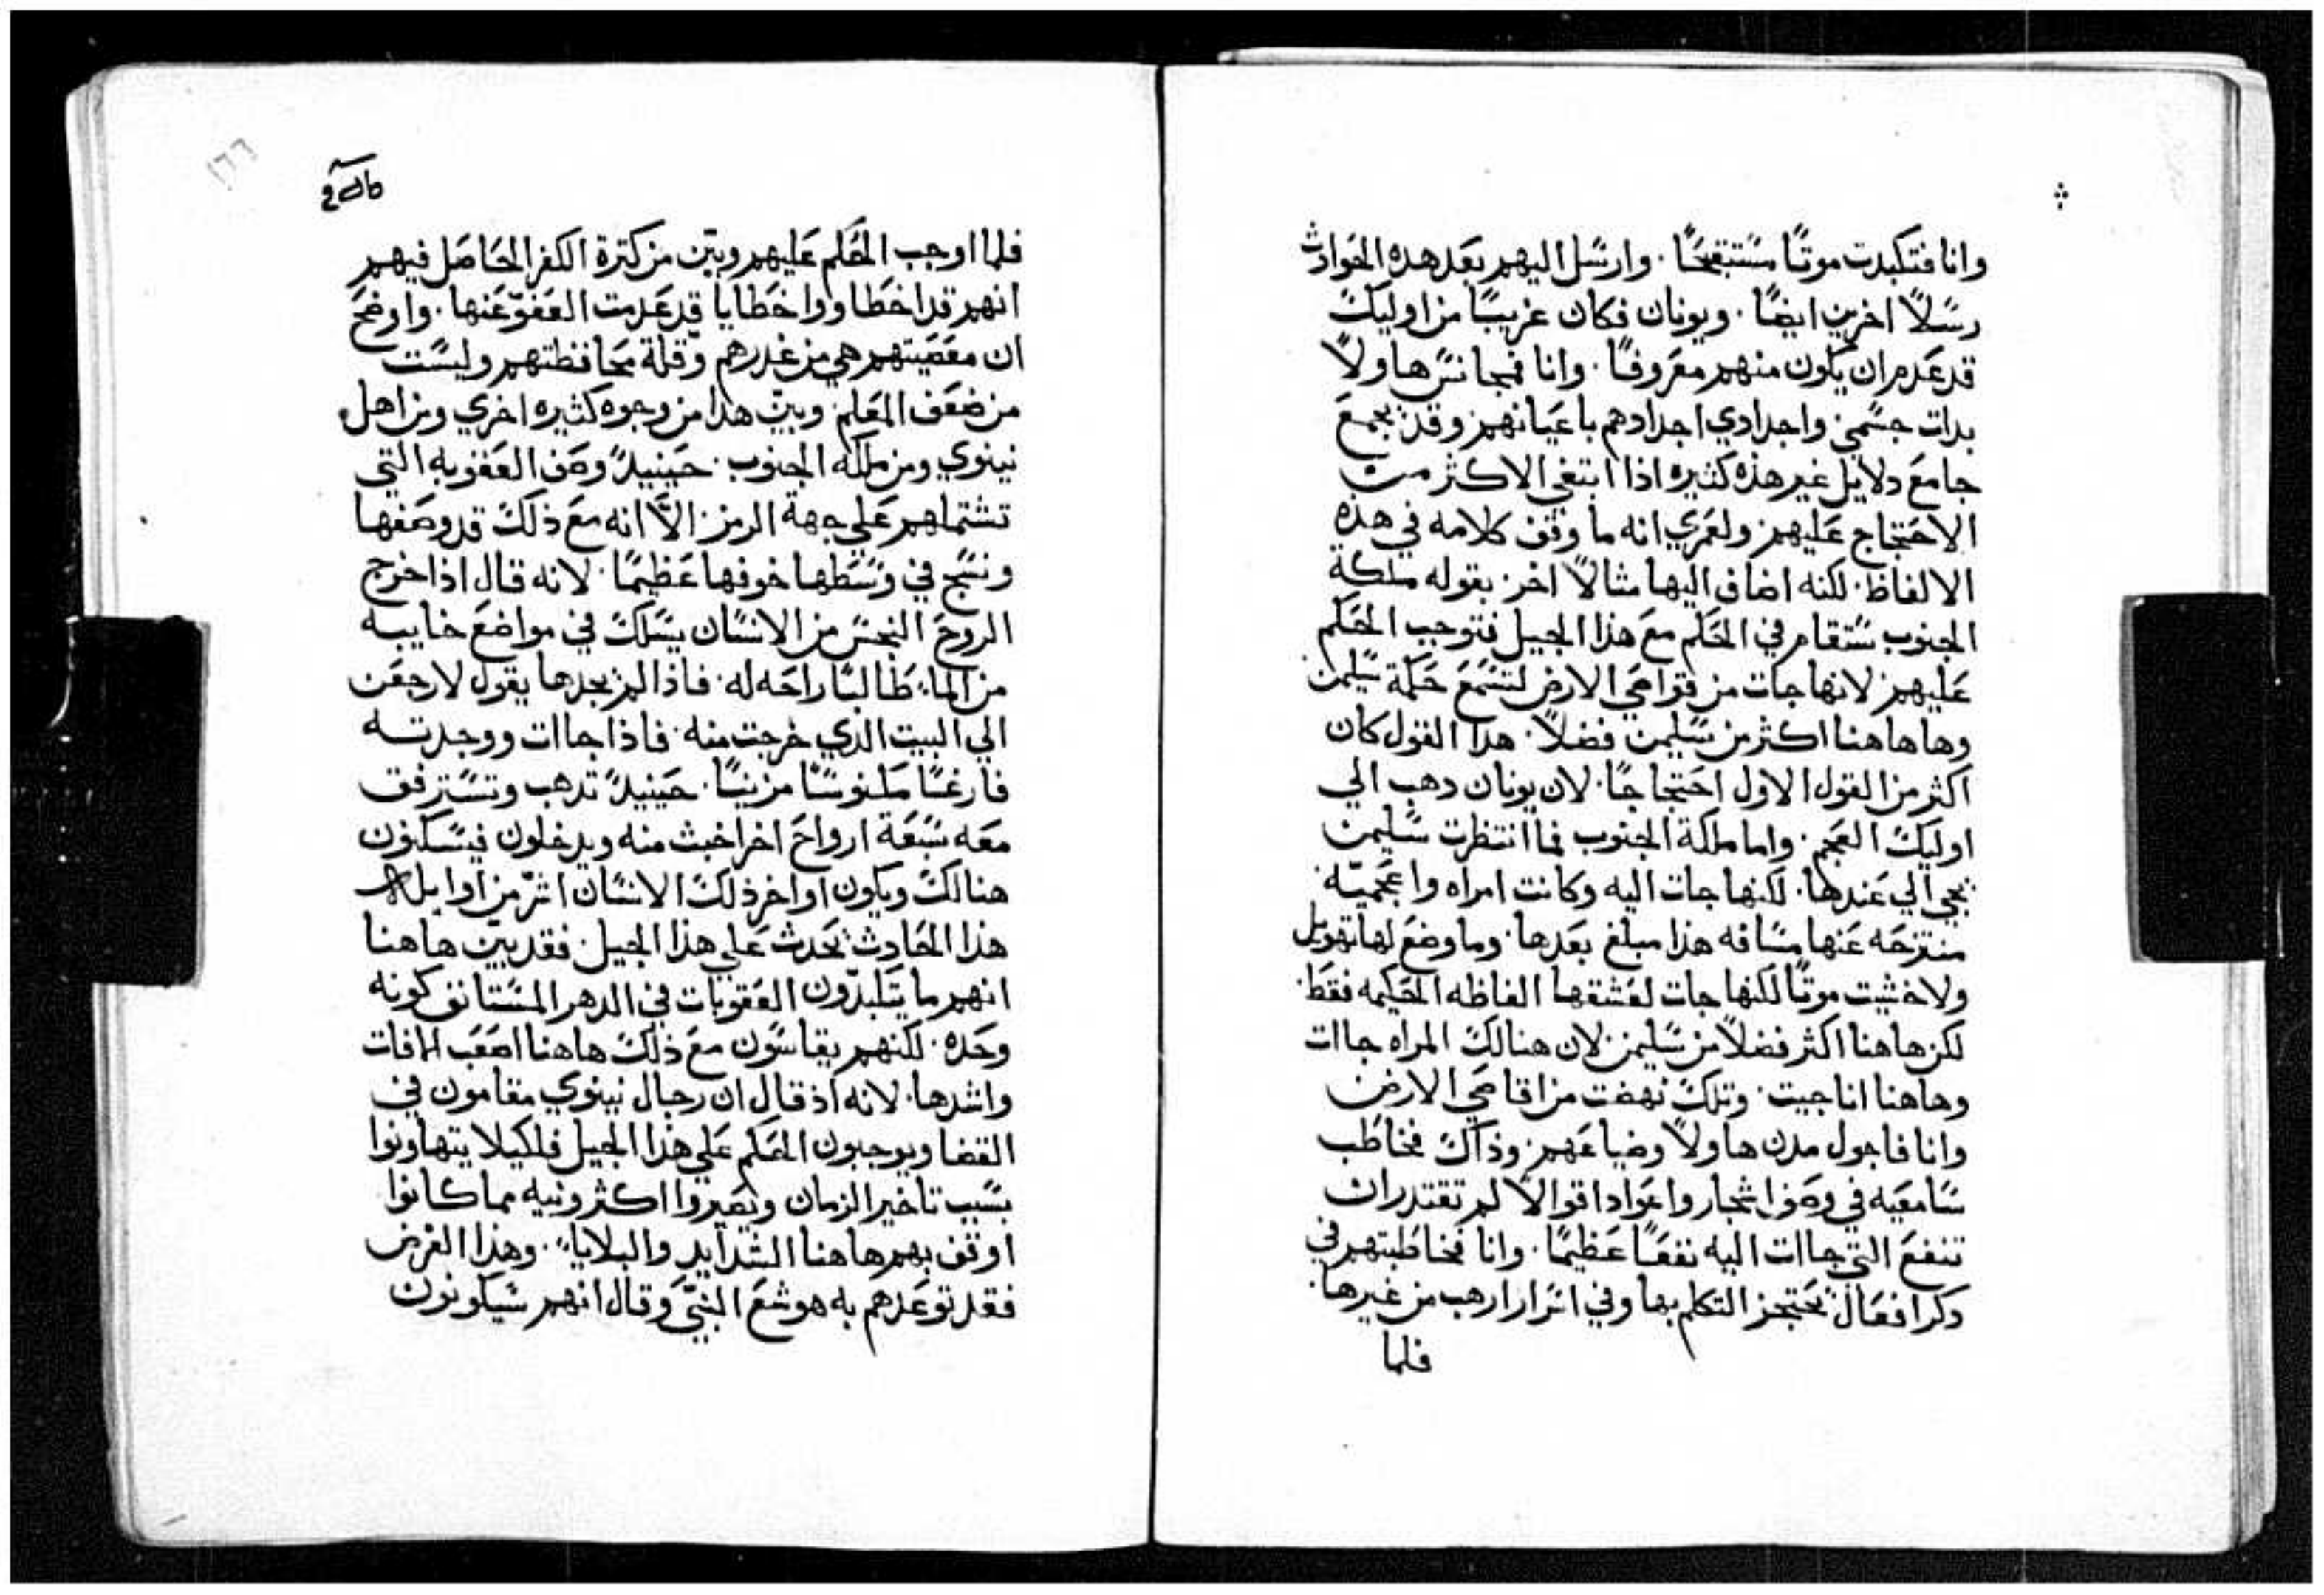 وانا فتكبدت موتًا مستقبحًا . وارسل اليهم بعد هده الحوادث
رسلاً اخرين ايضًا . ويونان فكان غريبًا من اوليك
قد عدم ان يكون منهم معروفًا . وانا فمجانس هاولاً
بدات جسمي واجدادي اجدادهم باعيانهم وقد يجمع
جامع دلايل غير هذه كثيره اذا ابتغي الاكثر من
الاحتجاج عليهم ولعمري انه ما وقف كلامه في هذه
الالفاظ . لكنه اضاف اليها مثالاً اخر بقوله ملكة
الجنوب ستقام في الحكم مع هذا الجيل فتوجب الحكم
عليهم لانها جات من قواصي الارض لتسمع حكمة سليمن
وها هاهنا اكثر من سليمن فضلاً . هدا القول كان
اكثر من القول الاول احتجاجًا . لان يونان دهب الي
اوليك العجم . واما ملكة الجنوب فما انتظرت سليمن
يجي الي عندها . لكنها جات اليه وكانت امراه واعجميّه
منتزحه عنها مسافه هذا مبلغ بعدها . وما وضع لها تهويل
ولا خشيت موتًا لكنها جات لعشقها الفاظه الحكيمه فقط .
لكن هاهنا اكثر فضلاً من سليمن لان هنالك المراه جاات
وهاهنا انا جيت . وتلك نهضت من اقاصي الارض
وانا فاجول مدن هاولاً وضياعهم وذاك فخاطب
سامعيه في وصف اشجار واعواد اقوالاً لم تقتدر ان
تنفع التي جاات اليه نفعًا عظيمًا . وانا فخاطبتهم في
دكر افعال يحتجز التكلم بها وفي اسرار ارهب من غيرها .
فلما
١٦٦
فلما اوجب الحكم عليهم وبيّن من كثرة الكفر الحاصل فيهم
انهم قد اخطاووا خطايا قد عدمت العفوّ عنها . واوضح
ان معصيتهم هي من غدرهم وقلة محافظتهم وليست
من ضعف المعلم وبيّن هدا من وجوه كثيره اخري ومن اهل
نينوي ومن ملكه الجنوب . حينيدٍ وصف العقوبه التي
تشتملهم علي جهة الرمز الاّ انه مع ذلك قد وصفها
ونسج في وسطها خوفها عظيمًا . لانه قال اذا خرج
الروح النجس من الانسان يسلك في مواضع خايبه
من الما طالبًا راحه له . فاذا لم يجدها يقول لارجعن
الي البيت الدي خرجت منه . فاذا جاات ووجدته
فارغًا مكنوسًا مزينًا . حينيدٍ تدهب وتسترفق
معه سبعة ارواح اخر اخبث منه ويدخلون فيسكنون
هنالك ويكون اواخر ذلك الانسان اشرّ من اوايله
هذا الحادث يحدث علي هذا الجيل . فقد بيّن هاهنا
انهم ما يتكبدّون العقوبات في الدهر المستانف كونه
وحده . لكنهم يقاسون مع ذلك هاهنا اصعب الافات
واشدها . لانه اذ قال ان رجال نينوي مقامون في
القضا ويوجبون الحكم علي هذا الجيل فلكيلا يتهاونوا
بسبب تاخير الزمان ويصيروا اكثر ونيه مما كانوا
اوقف بهم هاهنا الشدايد والبلايا . وهذا الغرض
فقد توعدهم به هوشع النبيّ وقال انهم سيكونون